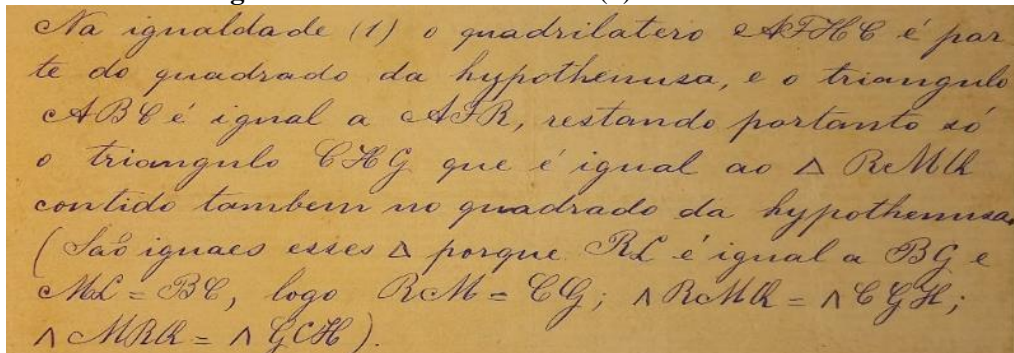 Na igualdade (1) o quadrilatero AFHC é par
te do quadrado da hypothenusa, e o triangulo
ABC é igual a AFR, restando portanto só
o triangulo CHG que é igual ao Δ RMK
contido tambem no quadrado da hypothenusa.
(São iguaes esses Δ porque RL é igual a BG e
ML = BC, logo RM = CG; ∧ RMK = ∧ CGH;
∧ MRK = ∧ GCH).